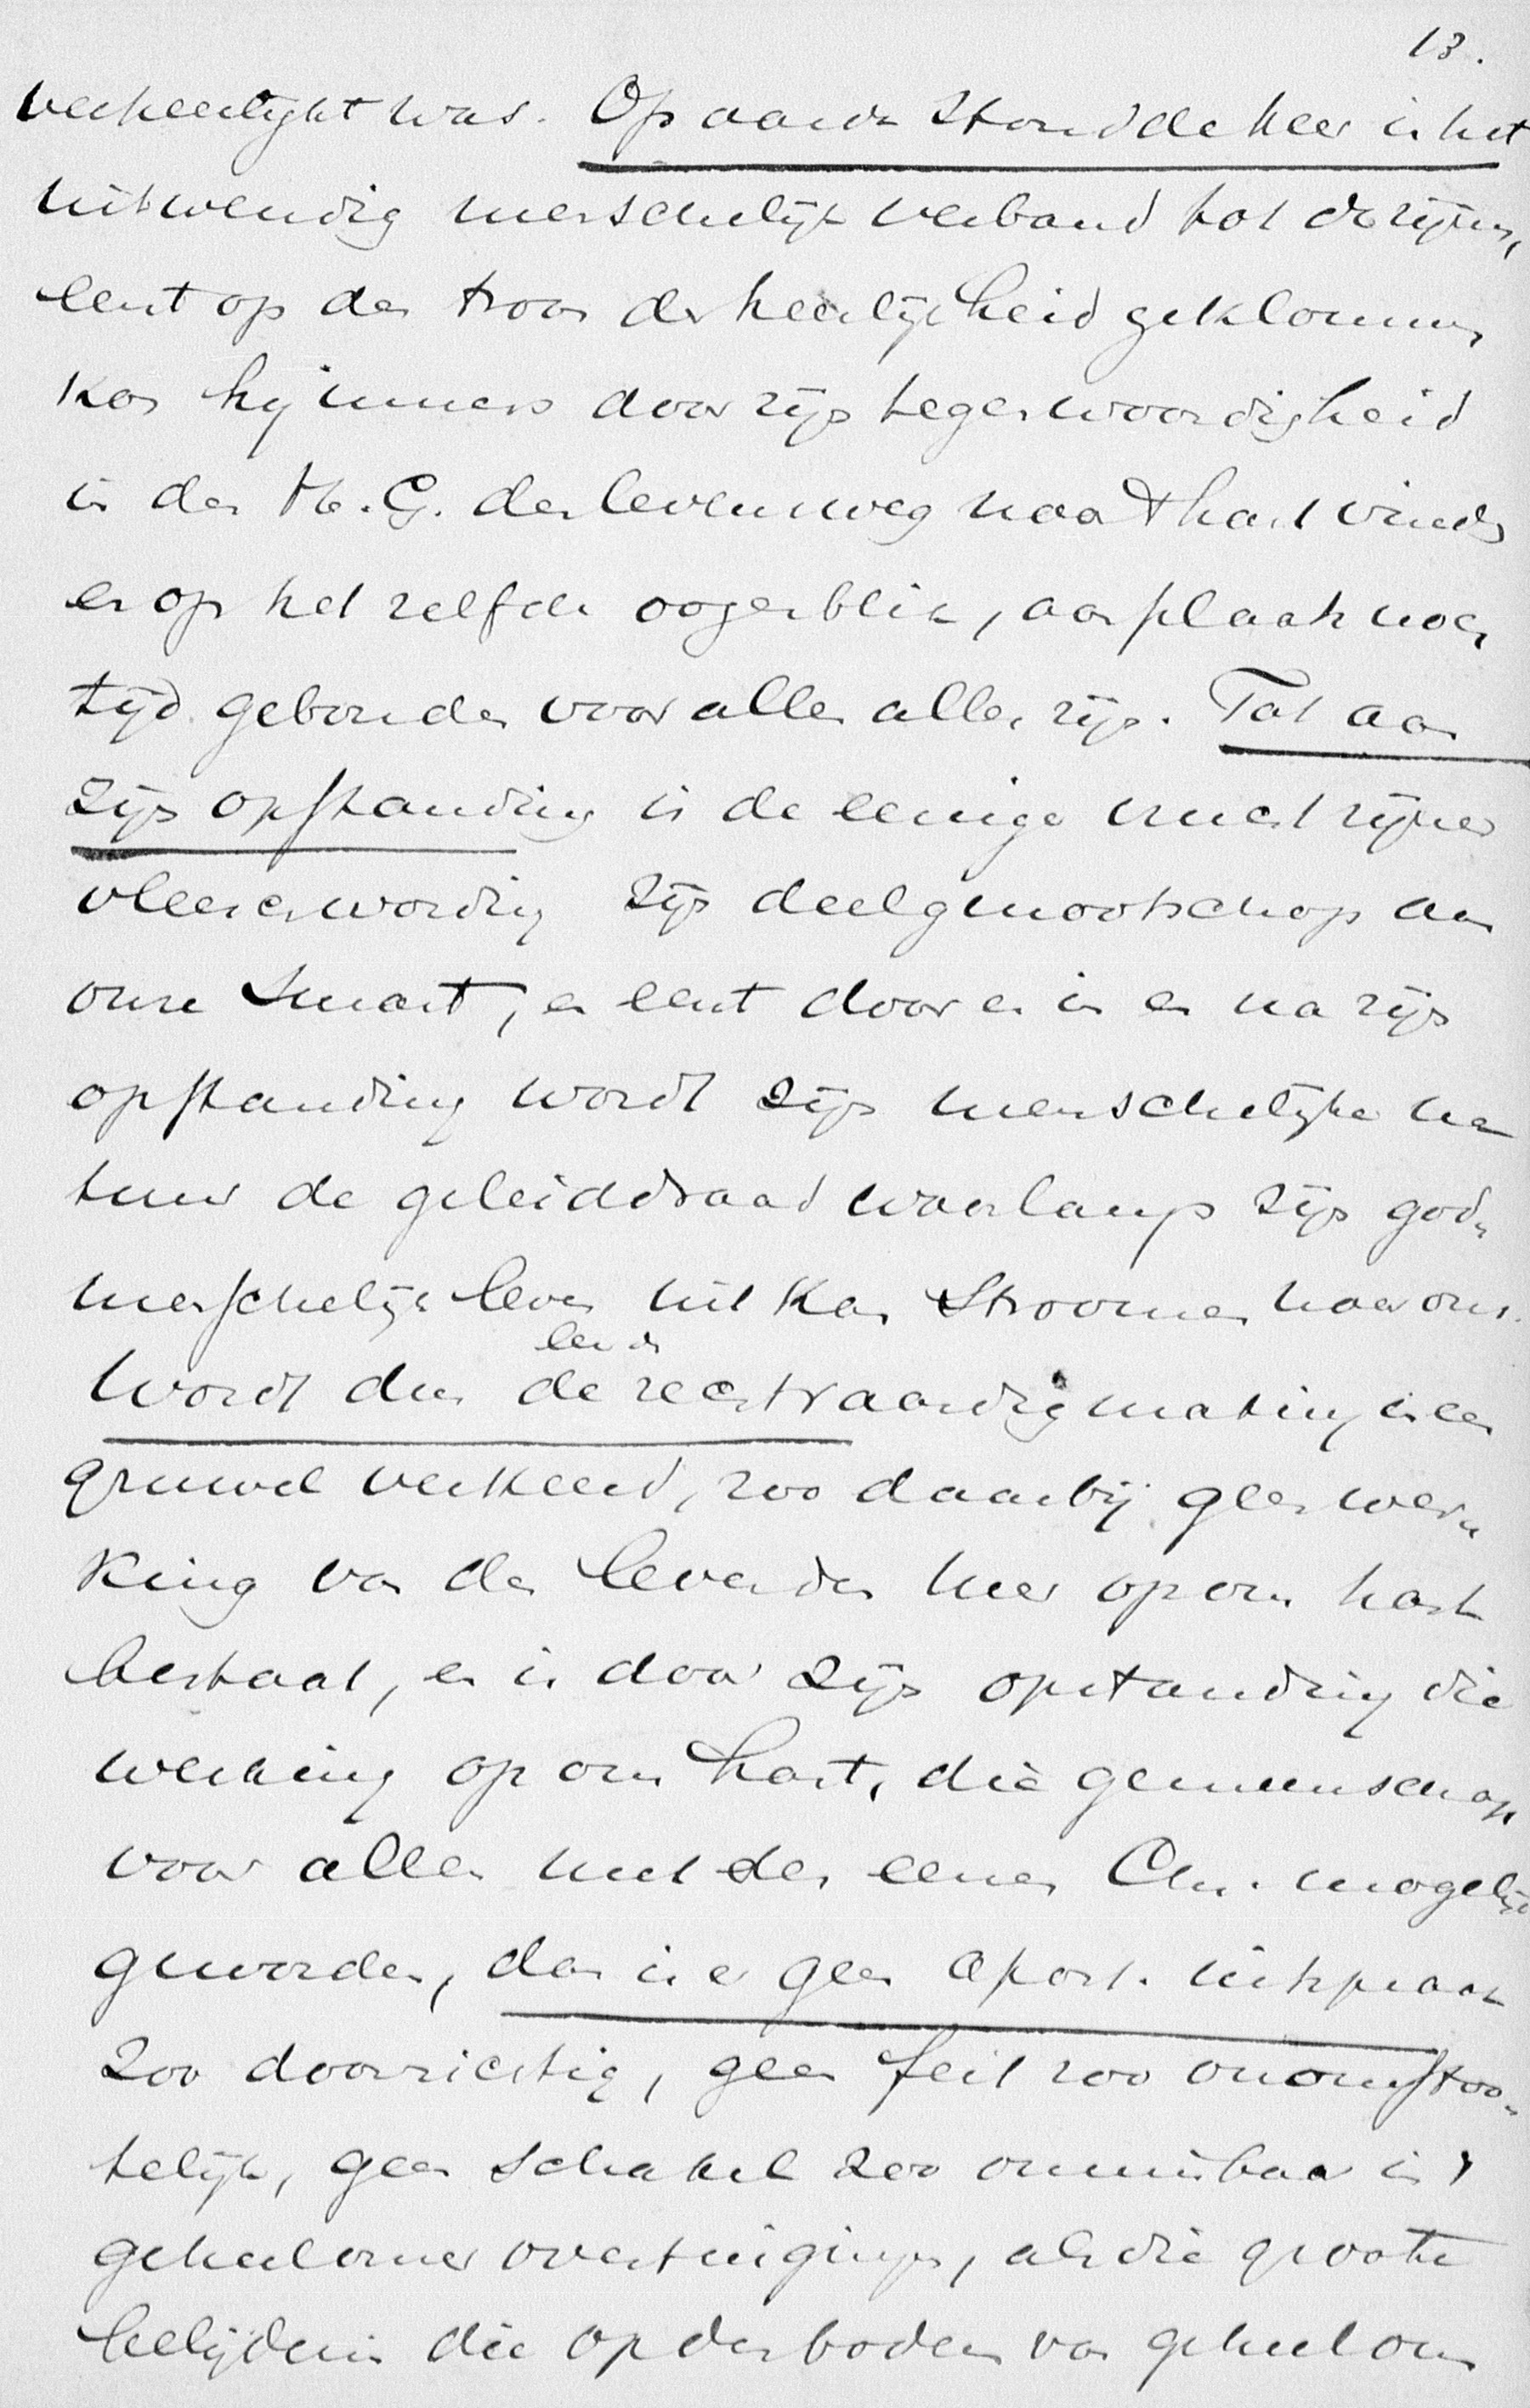 13.
verheerlijkt was. Op aarde stond de Heer in het
uitwendig menschelijk verband tot de zijnen,
eerst op den troon der heerlijkheid geklommen
kon hij immers door zijn tegenwoordigheid
in den H. G. den levensweg naar 't hart vinden
en op het zelfde oogenblik, aan plaats noch
tijd gebonden voor allen alles zijn. Tot aan
zijn opstanding is de eenige vrucht zijner
vleeschwording zijn deelgenootschap aan
onze smart, en eerst door en in en na zijn
opstanding wordt zijn menschelijke na
tuur de geleiddraad waarlangs zijn god-
menschelijk leven uit kan stroomen naar ons.
Wordt dus de rechtvaardigmaking in een
gruwel verkeerd, zoo daarbij geen wer-
king van den levenden Heer op ons hart
bestaat, en is door zijn opstanding die
werking op ons hart, die gemeenschap
voor allen met den eenen Chr. mogelijk
geworden, dan is er geen apost. uitspraak
zoo doorzichtig, geen feit zoo onomstoo-
telijk, geen schakel zoo onmisbaar in 't
geheel onzer overtuigingen, als die groote
belijdenis die op den bodem van geheel ons